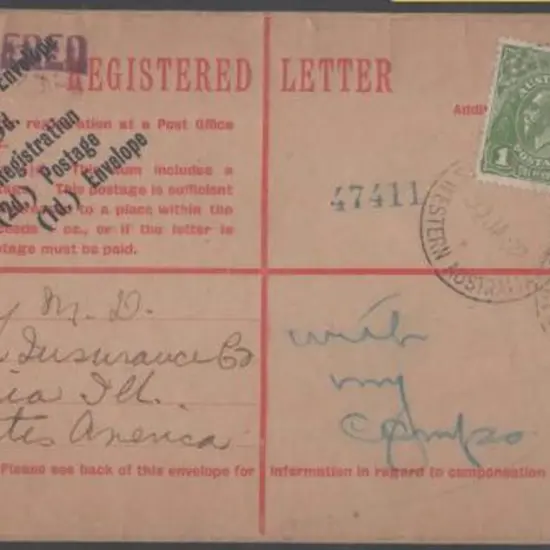 ERED
REGISTERED LETTER
Envelope
d.
Registration
(2d.) Postage
(1d.) Envelope
at a Post Office
includes a
This postage is sufficient
to a place within the
or if the letter is
postage must be paid.
Addi
47411
AUST
1
POSTAGE
WESTERN AUSTRALIA
M. D.
Insurance Co
ia Ill.
tes America
with
my
Please see back of this envelope for information in regard to compensation